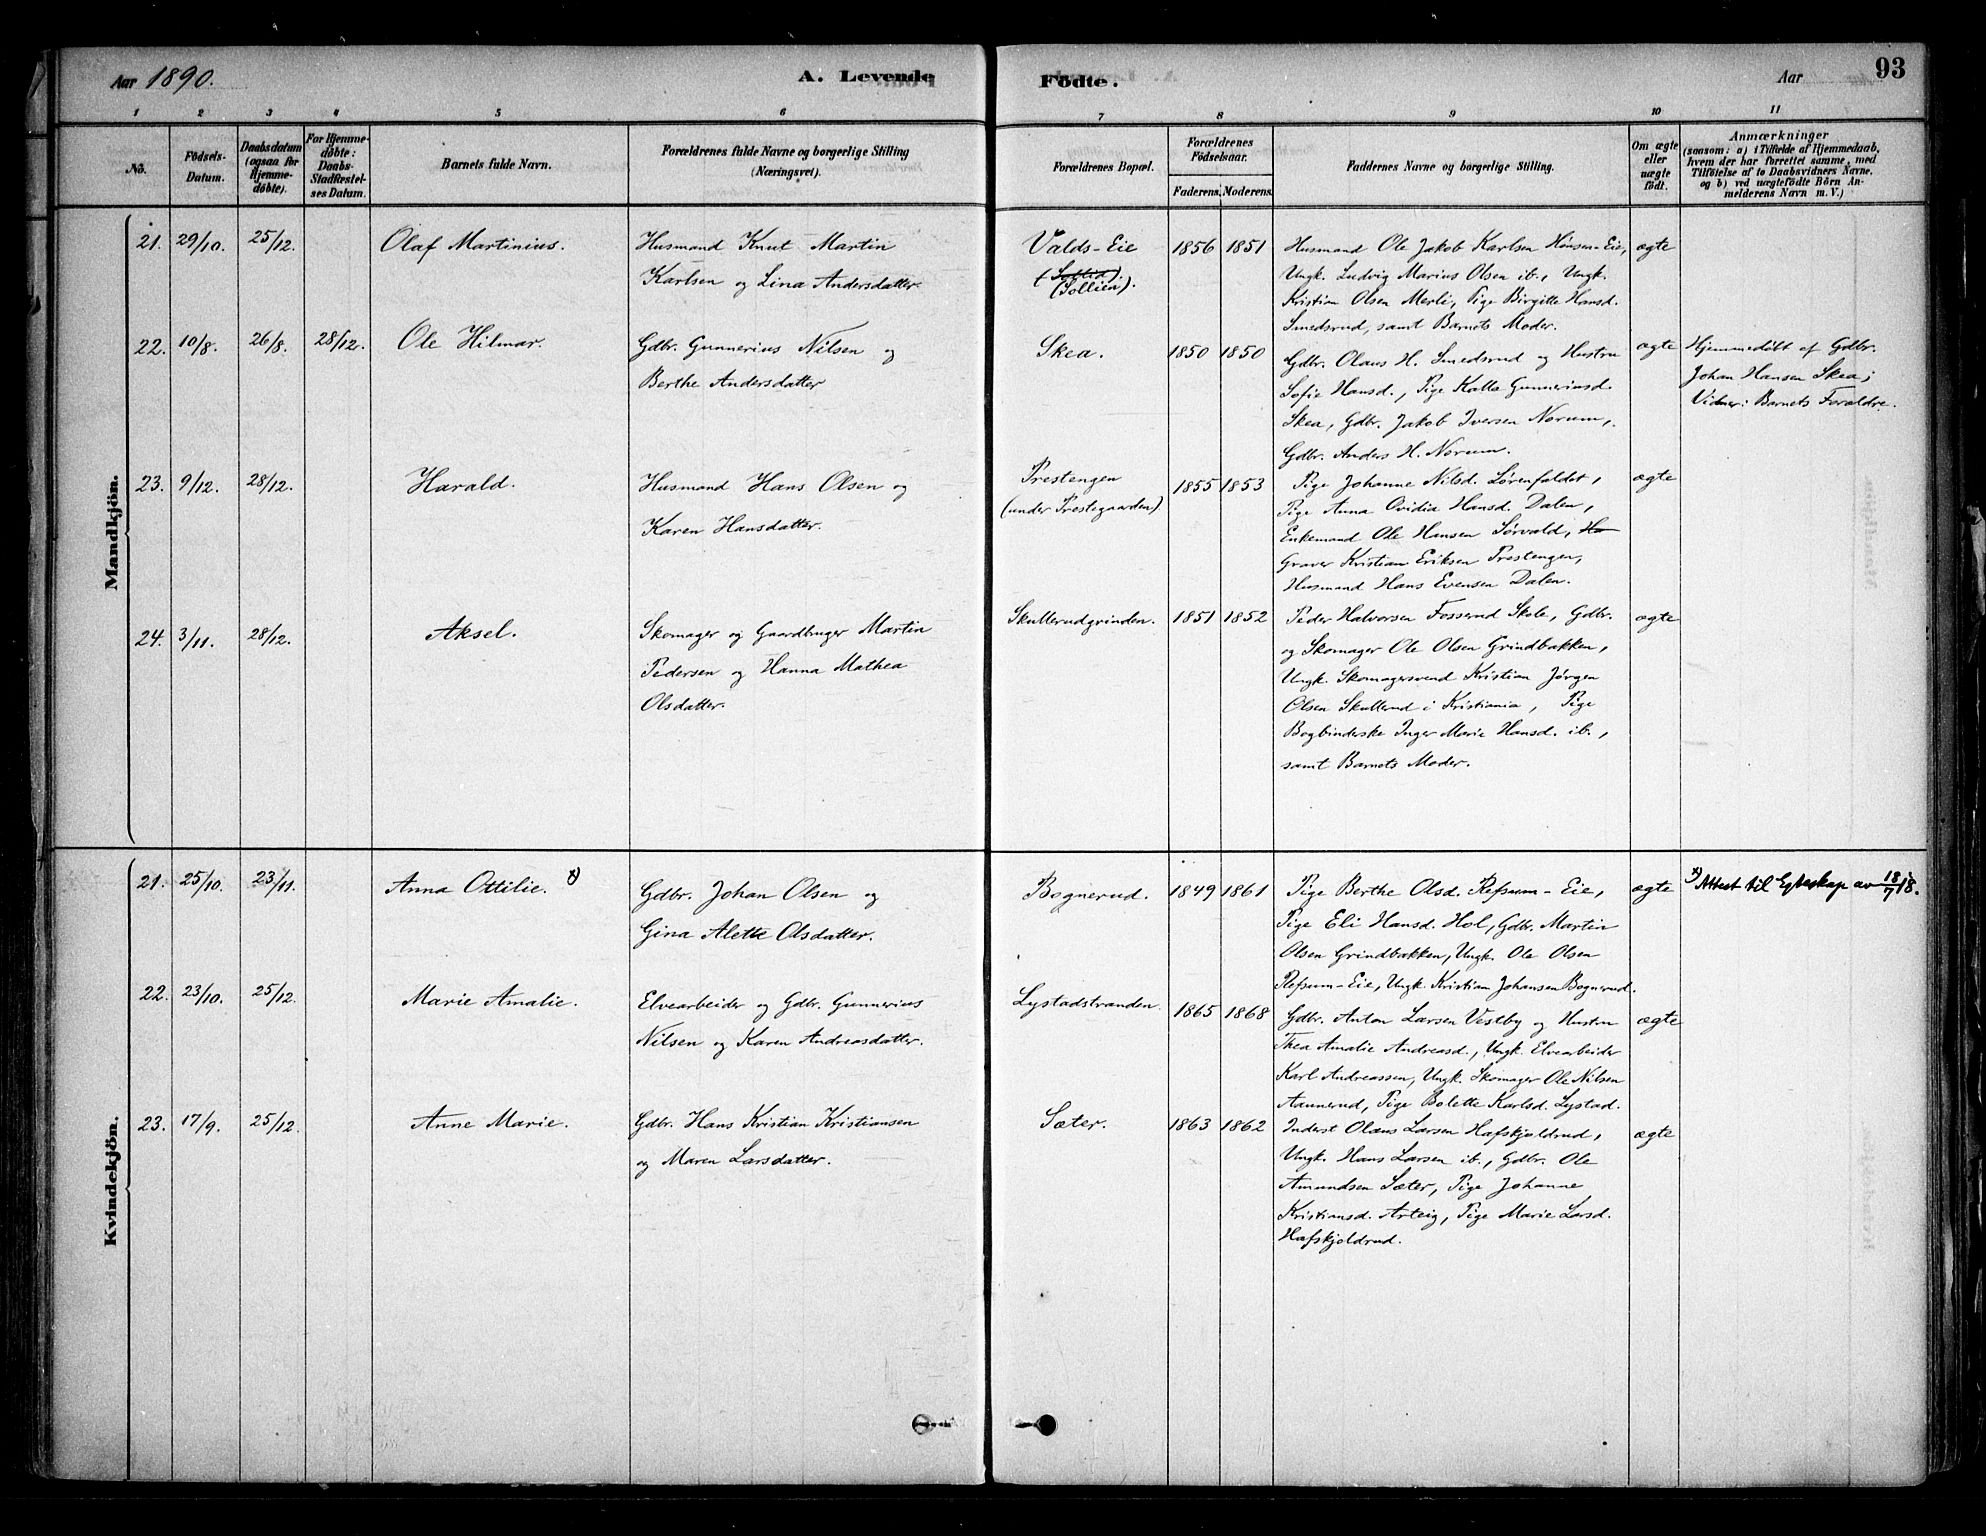 Aar 1890. A. Levende Födte. Aar 93
1 2 3 4 5 6 7 8 9 10 11
No. Födsels-Datum. Daabsdatum (ogsaa for Hjemmedöbte). For Hjemmedöbte: Daabs-Stadfæstelses Datum. Barnets fulde Navn. Forældrenes fulde Navne og borgerlige Stilling (Næringsvei). Forældrenes Bopæl. Forældrenes Födselsaar. Faderens. Moderens. Faddernes Navne og borgerlige Stilling. Om ægte eller uægte födt. Anmærkninger (saasom: a) i Tilfælde af Hjemmedaab, hvem der har forrettet samme, med Tilföielse af to Daabsvidners Navne, og b) ved uægtefödte Börn Anmelderens Navn m. V.)
Mandkjön.
21. 29/10. 25/12. Olaf Martinius. Husmand Knut Martin
Karlsen og Lina Andersdatter.
Valds-Eie
(Sollia).
(Sollien).
1856 1851
Husmand Ole Jakob Karlsen Hønsen-Eie,
Ungk. Ludvig Marius Olsen ib., Ungk.
Kristian Olsen Merli, Pige Birgitte Hansd.
Smedsrud, samt Barnets Moder.
ægte
22. 10/8. 26/8. 28/12. Ole Hilmar. Gdbr. Gunnerius Nilsen og
Berthe Andersdatter
Skea. 1850 1850
Gdbr. Olaus H. Smedsrud og Hustru
Sofie Hansd., Pige Kalla Gunneriusd.
Skea, Gdbr. Jakob Iversen Norum,
Gdbr. Anders H. Norum.
ægte
Hjemmedøbt af Gdbr.
Johan Hansen Skea;
Vidner: Barnets Forældre.
23. 9/12. 28/12. Harald. Husmand Hans Olsen og
Karen Hansdatter.
Prestengen
(under Prestegaarden)
1855 1853
Pige Johanne Nilsd. Lørenfaldet,
Pige Anna Ovidia Hansd. Dalen,
Enkemand Ole Hansen Sørvald, Ha
Graver Kristian Eriksen Prestengen,
Husmand Hans Evensen Dalen.
ægte
24. 3/11. 28/12. Aksel. Skomager og Gaardbruger Martin
Pedersen og Hanna Mathea
Olsdatter.
Skullerudgrinden. 1851 1852
Peder Halvorsen Fosserud Skole, Gdbr.
og Skomager Ole Olsen Grindbakken,
Ungk. Skomagersvend Kristian Jørgen
Olsen Skullerud i Kristiania, Pige
Bogbinderske Inger Marie Hansd. ib.,
samt Barnets Moder.
ægte
Kvindekjön.
21. 25/10. 23/11. Anna Ottilie. x) Gdbr. Johan Olsen og
Gina Alette Olsdatter.
Bognerud. 1849 1861
Pige Berthe Olsd. Refsum-Eie,
Pige Eli Hansd. Hol, Gdbr. Martin
Olsen Grindbakken, Ungk. Ole Olsen
Refsum-Eie, Ungk. Kristian Johansen Bognerud.
ægte
x) Attest til Egteskap av 18/7 18.
22. 23/10. 25/12. Marie Amalie. Elvearbeider og Gdbr. Gunnerius
Nilsen og Karen Andreasdatter.
Lystadstranden. 1865 1868
Gdbr. Anton Larsen Vestby og Hustru
Thea Amalie Andreasd., Ungk. Elvearbeider
Karl Andreassen, Ungk. Skomager Ole Nilsen
Aannerud, Pige Bolette Karlsd. Lystad.
ægte
23. 17/9. 25/12. Anne Marie. Gdbr. Hans Kristian Kristiansen
og Maren Larsdatter.
Sæter. 1863 1862
Inderst Olaus Larsen Hafskjoldrud,
Ungk. Hans Larsen ib., Gdbr. Ole
Amundsen Sæter, Pige Johanne
Kristiansd. Arteig, Pige Marie Larsd.
Hafskjoldrud.
ægte